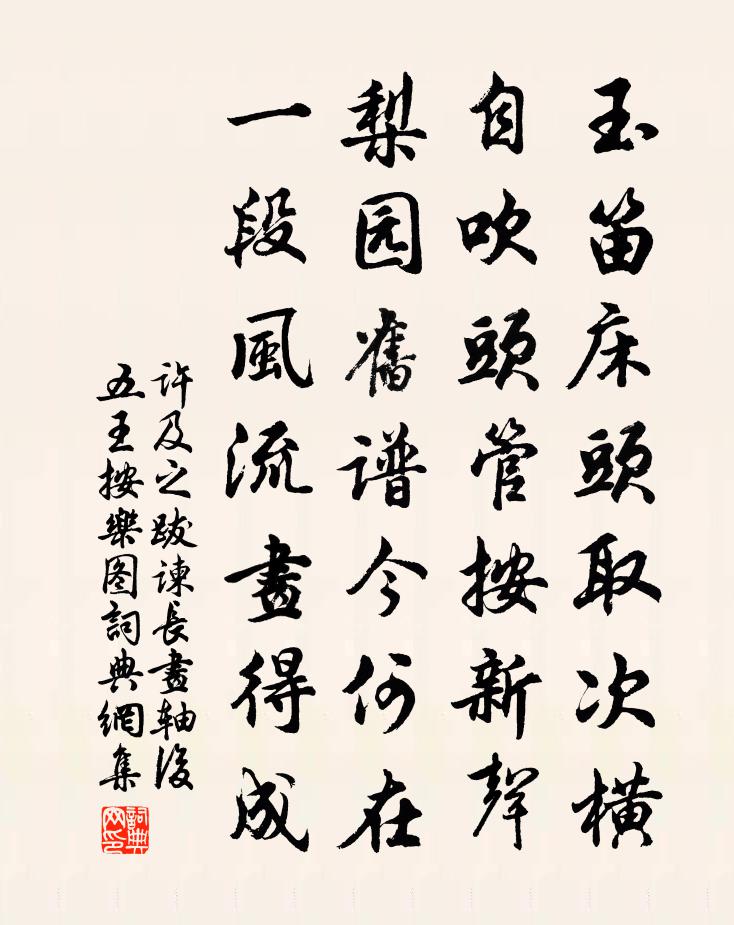 玉笛床頭取次橫
自吹頭管按新聲
梨园舊谱今何在
一段風流畫得成
許及之跋諫長畫軸後
五王按樂图詞典網集
詞典网印